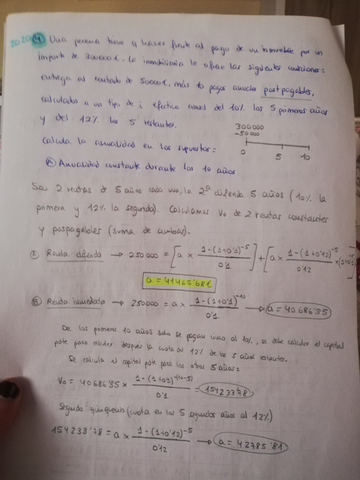 2020 4 Una persona tiene q hacer frente al pago de un inmueble por un
importe de 300000 €. La inmobiliaria le ofrece las siguientes condiciones =
entrega al contado de 50000 €, más 10 pagos anuales postpagables,
calculados a un tipo de i efectivo anual del 10% los 5 primeros años
y del 12% los 5 restantes.
300000
-50000
Calcula la anualidad en los supuestos =
0 5 10
A Anualidad constante durante los 10 años
Son 2 rentas de 5 años cada una, la 2ª diferida 5 años (10% la
primera y 12% la segunda). Calculamos V0 de 2 rentas constantes
y pospagables (suma de ambas).
Renta diferida → 250000 = [a × 1-(1+0'1)^-5 / 0'1] + [a × 1-(1+0'12)^-5 / 0'12
a = 41465'681
B Renta inmediata → 250000 = a × 1-(1+0'1)^-10 / 0'1 → a = 40686'35
De los primeros 10 años solo se pagan cinco al 10%, se debe calcular el capital
pdte para hallar después la cuota al 12% de los 5 años restantes.
Se calcula el capital pdte para los otros 5 años =
V0 = 40686'35 × 1-(1+0'1)^-(10-5) / 0'1 = 154233'78
Segundo quinquenio (cuota en los 5 segundos años al 12%)
154233'78 = a × 1-(1+0'12)^-5 / 0'12 → a = 42785'81